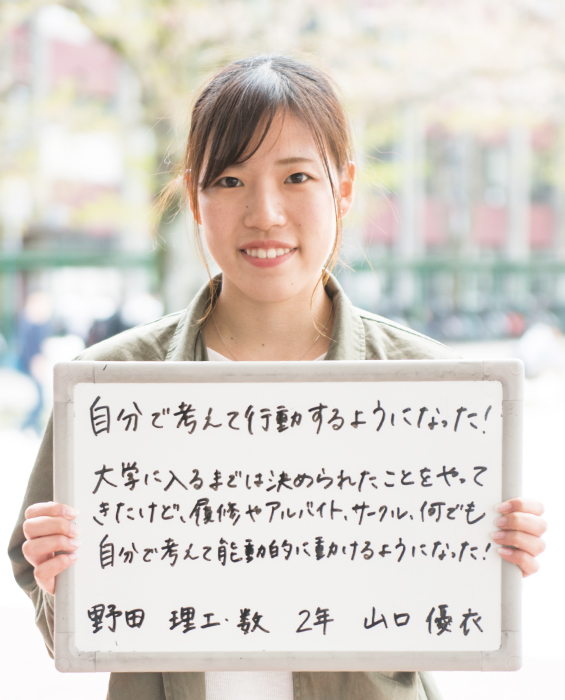 自分で考えて行動するようになった!
大学に入るまでは決められたことをやって
きたけど、履修やアルバイト、サークル、何でも
自分で考えて能動的に動けるようになった!
野田 理工・数 2年 山口 優衣